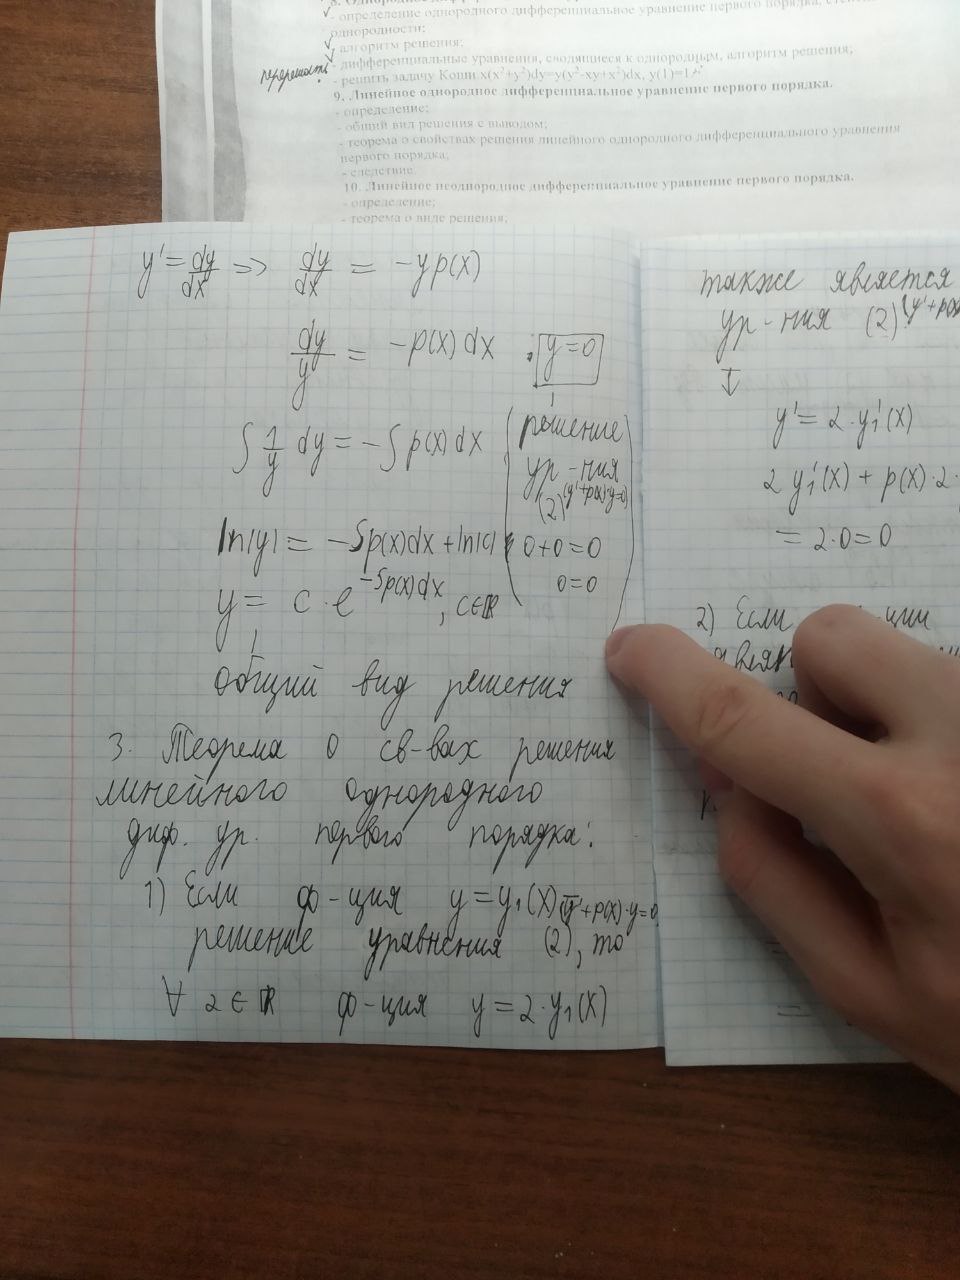 8. Однородное
- определение однородного дифференциальное уравнение первого порядка,
однородности;
- алгоритм решения;
- дифференциальные уравнения, сводящиеся к однородным, алгоритм решения;
перерешать
- решить задачу Коши x(x²+y²)dy=y(y²-xy+x²)dx, y(1)=1
9. Линейное однородное дифференциальное уравнение первого порядка.
- определение;
- общий вид решения с выводом;
- теорема о свойствах решения линейного однородного дифференциального уравнения
первого порядка;
- следствие.
10. Линейное неоднородное дифференциальное уравнение первого порядка.
- определение;
- теорема о виде решения;
y' = dy/dx => dy/dx = -yp(x)
dy/y = -p(x)dx y=0
∫ 1/y dy = -∫ p(x)dx
решение
ур-ния
(2) (y'+p(x)·y=0)
0+0=0
0=0
ln|y| = -∫p(x)dx + ln|c|
y = c·e^(-∫p(x)dx), c∈ℝ
общий вид решения
3. Теорема о св-вах решения
линейного однородного
диф. ур. первого порядка:
1) Если ф-ция y=y₁(x) (y'+p(x)·y=0
решение уравнения (2), то
∀ 2 ∈ ℝ ф-ция y=2·y₁(x)
также является
ур-ния (2) (y'+p(x)
↓
y' = 2·y₁'(x)
2y₁'(x) + p(x)·2·
= 2·0=0
2) Если
=
=